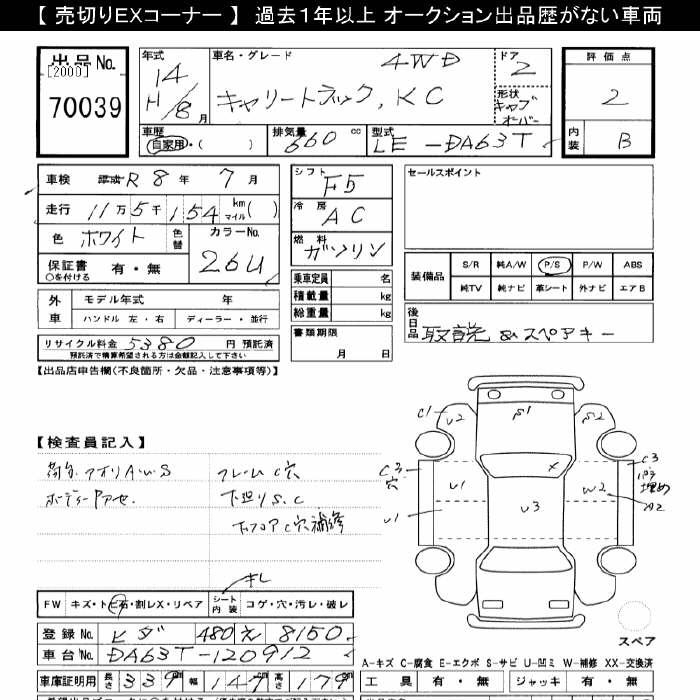 【 売切りEXコーナー 】 過去1年以上 オークション出品歴がない車両
出品 No.
[2000]
70039
年式
14
H/8 月
車名・グレード
4WD
キャリートラック, KC
ドア
2
形状
キャブオーバー
評価点
2
内装
B
車歴
自家用・( )
排気量
660 cc
型式
LE -DA63T
車検 平成 R 8 年 7 月
走行 11 万 5 千 154 km マイル ( )
色 ホワイト 色替
カラーNo.
26U
保証書 有・無
○を付ける
シフト
F5
冷房
AC
燃料
ガソリン
セールスポイント
乗車定員 名
積載量 kg
総重量 kg
装備品
S/R 純A/W P/S P/W ABS
純TV 純ナビ 革シート 外ナビ エアB
外車
モデル年式 年
ハンドル 左・右 ディーラー・並行
書類期限
月 日
後日品
取説 & スペアキー
リサイクル料金 5380 円 預託済
預託済で精算希望される方は金額記入して下さい
【出品店申告欄(不良箇所・欠品・注意事項等)】
【検査員記入】
荷台 アオリ A.W.S フレーム C穴
ボディー下アセ. 下廻り S.C
下フロア C穴補修
C1 U2 S1 S2
C3穴 U1 U1 X U3 W2
C3 パテ埋め A2
スペア
FW キズ・ト ビ石・割レX・リペア シート内装 コゲ・穴・汚レ・破レ
キレ
登録 No. ヒダ 480 え 8150
車台 No. DA63T-120912
車庫証明用 長さ 339 cm 幅 147 cm 高さ 179 cm
A-キズ C-腐食 E-エクボ S-サビ U-凹ミ W-補修 XX-交換済
工具 有・無 ジャッキ 有・無